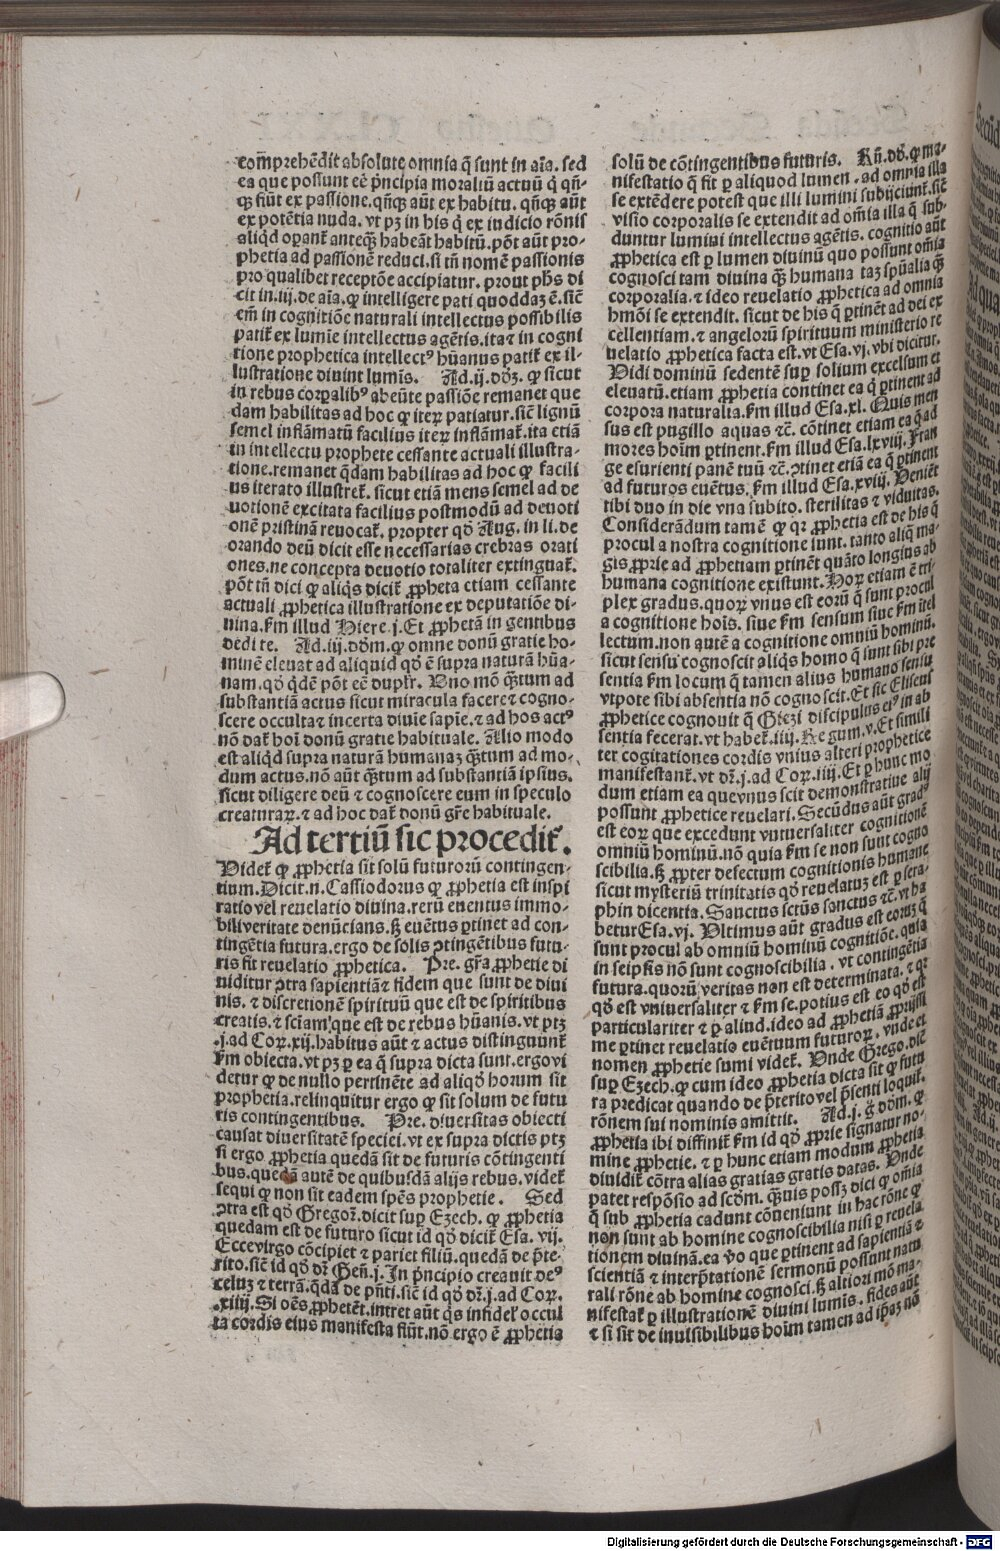 com̃prehẽdit absolute omnia q̃ sunt in aĩa. sed
ea que possunt eẽ p̃ncipia moraliũ actuũ q̃ qñ-
q̃ fiũt ex passione. qñq̃ aũt ex habitu. qñq̃ aũt
ex potẽtia nuda. vt pꝫ in his q̃ ex iudicio rõnis
aliqd̃ operant̃ anteq̃ habeãt habitũ. põt aũt pro-
phetia ad passionẽ reduci. si tñ nomẽ passionis
pro qualibet receptõe accipiatur. prout ph̃s di
cit in .iij. de aĩa. ꝙ intelligere pati quoddaꝫ ẽ. sic̃
em̃ in cognitiõe naturali intellectus possibilis
patit̃ ex lumĩe intellectus agẽtis. ita ⁊ in cogni
tione prophetica intellectꝰ hũanus patit̃ ex il-
lustratione diuini lumĩs. Ad .ij. dõꝫ. ꝙ sicut
in rebus corp̃alibꝰ abeũte passiõe remanet que
dam habilitas ad hoc ꝙ iteꝝ patiatur. sic̃ lignũ
semel inflãmatũ facilius iteꝝ inflãmat̃. ita etiã
in intellectu prophete cessante actuali illustra-
tione. remanet q̃dam habilitas ad hoc ꝙ facili
us iterato illustret̃. sicut etiã mens semel ad de
uotionẽ excitata facilius postmodũ ad deuoti
onẽ pristinã reuocat̃. propter qd̃ Aug. in li. de
orando deũ dicit esse necessarias crebras orati
ones. ne concepta deuotio totaliter extinguat̃.
põt tñ dici ꝙ aliq̃s dicit̃ ꝓpheta etiam cessante
actuali ꝓphetica illustratione ex deputatiõe di-
nina. ẜm illud Hiere. j. Et ꝓphetã in gentibus
dedi te. Ad .iij. dõm. ꝙ omne donũ gratie ho-
minẽ eleuat ad aliquid qd̃ ẽ supra naturã hũa-
nam. qd̃ q̃dẽ põt eẽ duplr̃. Uno mõ q̃tum ad
substantiã actus sicut miracula facere ⁊ cogno-
scere occulta ⁊ incerta diuĩe sapiẽ. ⁊ ad hos actꝰ
nõ dat̃ hoĩ donũ gratie habituale. Alio modo
est aliqd̃ supra naturã humanaꝫ q̃tum ad mo-
dum actus. nõ aũt q̃tum ad substantiã ipsius.
sicut diligere deũ ⁊ cognoscere eum in speculo
creaturaꝝ. ⁊ ad hoc dat̃ donũ gr̃e habituale.
Ad tertiũ sic procedit̃.
Uidet̃ ꝙ ꝓphetia sit solũ futuroꝝũ contingen-
tium. Dicit .n. Cassiodorus ꝙ ꝓphetia est inspi
ratio vel reuelatio diuina. rerũ euentus immo-
bili veritate denũcians. sꝫ euẽtus ꝑtinet ad con-
tingẽtia futura. ergo de solis ꝯtingẽtibus futu-
ris fit reuelatio ꝓphetica. Pre. gr̃a ꝓphetie di
niditur ꝯtra sapientiã ⁊ fidem que sunt de diui
nis. ⁊ discretionẽ spirituũ que est de spiritibus
creatis. ⁊ sciam̃ que est de rebus hũanis. vt ptꝫ
.j. ad Coꝝ. xij. habitus aũt ⁊ actus distinguunt̃
ẜm obiecta. vt pꝫ ꝑ ea q̃ supra dicta sunt. ergo vi
detur ꝙ de nullo pertinẽte ad aliqd̃ horum sit
prophetia. relinquitur ergo ꝙ sit solum de futu
ris contingentibus. Pre. diuersitas obiecti
causat diuersitatẽ speciei. vt ex supra dictis ptꝫ
si ergo ꝓphetia quedã sit de futuris cõtingenti
bus. quedã autẽ de quibusdã alijs rebus. videt̃
sequi ꝙ non sit eadem sp̃es prophetie. Sed
ꝯtra est qd̃ Gregor̃. dicit suꝑ Ezech. ꝙ ꝓphetia
quedam est de futuro sicut id qd̃ dicit̃ Esa. vij.
Ecce virgo cõcipiet ⁊ pariet filiũ. quedã de p̃te-
rito. sic̃ id qd̃ dr̃ Geñ. j. In p̃ncipio creauit deꝰ
celuꝫ ⁊ terrã. q̃dã de p̃nti. sic̃ id qd̃ dr̃. j. ad Coꝝ.
.xiiij. Si oẽs ꝓphetẽt. intret aũt q̃s infidel̃ occul
ta cordis eius manifesta fiũt. nõ ergo ẽ ꝓphetia
solũ de cõtingentibus futuris. Rñ. dõ. ꝙ ma-
nifestatio q̃ fit ꝑ aliquod lumen. ad omnia illa
se extẽdere potest que illi lumini subijciunt̃. sic̃
visio corporalis se extendit ad om̃ia illa q̃ sub-
duntur lumini intellectus agẽtis. cognitio aũt
ꝓphetica est ꝑ lumen diuinũ quo possunt om̃ia
cognosci tam diuina q̃ humana taꝫ sp̃ualia q̃
corporalia. ⁊ ideo reuelatio ꝓphetica ad omnia
hmõi se extendit. sicut de his q̃ ꝑtinẽt ad dei ex
cellentiam. ⁊ angelorũ spirituum ministerio re
uelatio ꝓphetica facta est. vt Esa. vj. vbi dicitur.
Uidi dominũ sedentẽ suꝑ solium excelsum et
eleuatũ. etiam ꝓphetia continet ea q̃ ꝑtinent ad
corpora naturalia. ẜm illud Esa. xl. Quis men
sus est pugillo aquas ⁊c̃. cõtinet etiam ea q̃ ad
mores hoĩm ꝑtinent. ẜm illud Esa. lxviij. Fran
ge esurienti panẽ tuũ ⁊c̃. ꝯtinet etiã ea q̃ ꝑtinent
ad futuros euẽtus. ẜm illud Esa. xviij. Uenient
tibi duo in die vna subito. sterilitas ⁊ viduitas.
Considerãdum tamẽ ꝙ qꝛ ꝓphetia est de his q̃
procul a nostra cognitione sunt. tanto aliq̃ ma-
gis ꝓprie ad ꝓphetiam ꝑtinẽt quãto longius ab
humana cognitione existunt. Hoꝝ etiam ẽ tri-
plex gradus. quoꝝ vnus est eorũ q̃ sunt procul
a cognitione hoĩs. siue ẜm sensum siue ẜm ĩtel
lectum. non autẽ a cognitione omniũ hominũ.
sicut sensu cognoscit aliq̃s homo q̃ sunt sibi pre
sentia ẜm locum q̃ tamen alius humano sensu
vtpote sibi absentia nõ cognoscit. Et sic Eliseus
ꝓphetice cognouit q̃ Giezi discipulus eiꝰ in ab
sentia fecerat. vt habet̃. iiij. Regum. v. Et simili
ter cogitationes cordis vnius alteri prophetice
manifestant̃. vt dr̃. j. ad Coꝝ. iiij. Et ꝑ hunc mo
dum etiam ea que vnus scit demonstratiue alij
possunt ꝓphetice reuelari. Secũdus aũt gradꝰ
est eoꝝ que excedunt vniuersaliter cognitionẽ
omniũ hominũ. nõ quia ẜm se non sunt cogno
scibilia. sꝫ ꝓpter defectum cognitionis humane
sicut mysteriũ trinitatis qd̃ reuelatuꝫ est ꝑ sera-
phin dicentia. Sanctus sctũs sanctus ⁊c̃. vt ha
betur Esa. vj. Ultimus aũt gradus est eoruꝫ q̃
sunt procul ab omniũ hominũ cognitiõe. quia
in seipsis nõ sunt cognoscibilia. vt contingẽtia
futura. quorũ veritas non est determinata. ⁊ qꝛ
qd̃ est vniuersaliter ⁊ ẜm se. potius est eo qd̃ est
particulariter ⁊ ꝑ aliud. ideo ad ꝓphetiã ꝓprijssi
me ꝑtinet reuelatio euẽtuum futuroꝝ. vnde et
nomen ꝓphetie sumi videt̃. Unde Grego. dic̃
suꝑ Ezech. ꝙ cum ideo ꝓphetia dicta sit ꝙ futu
ra predicat quando de p̃terito vel p̃senti loquit̃.
rõnem sui nominis amittit. Ad .j. g̃ dõm. ꝙ
ꝓphetia ibi diffinit̃ ẜm id qd̃ ꝓprie signatur no-
mine ꝓphetie. ⁊ ꝑ hunc etiam modum ꝓphetia
diuidit̃ cõtra alias gratias gratis datas. Unde
patet respõsio ad scdm̃. q̃uis possꝫ dici ꝙ om̃ia
q̃ sub ꝓphetia cadunt cõueniunt in hac rõne ꝙ
non sunt ab homine cognoscibilia nisi ꝑ reuela
tionem diuinã. ea ṽo que ꝑtinent ad sapientiã ⁊
scientiã ⁊ interp̃tationẽ sermonũ possunt natu
rali rõne ab homine cognosci. sꝫ altiori mõ ma-
nifestat̃ ꝑ illustrationẽ diuini lumĩs. fides aũt
⁊ si sit de inuisibilibus hoĩm tamen ad ip̃aꝫ nõ
Digitalisierung gefördert durch die Deutsche Forschungsgemeinschaft - DFG